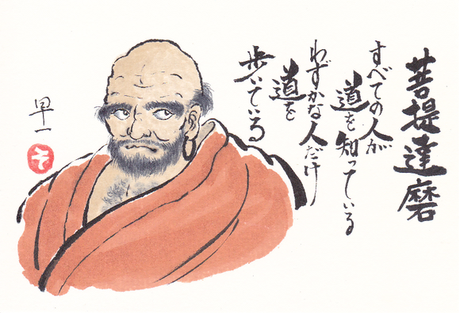 菩提達磨
すべての人が
道を知っている
わずかな人だけ
道を
歩いている
早一